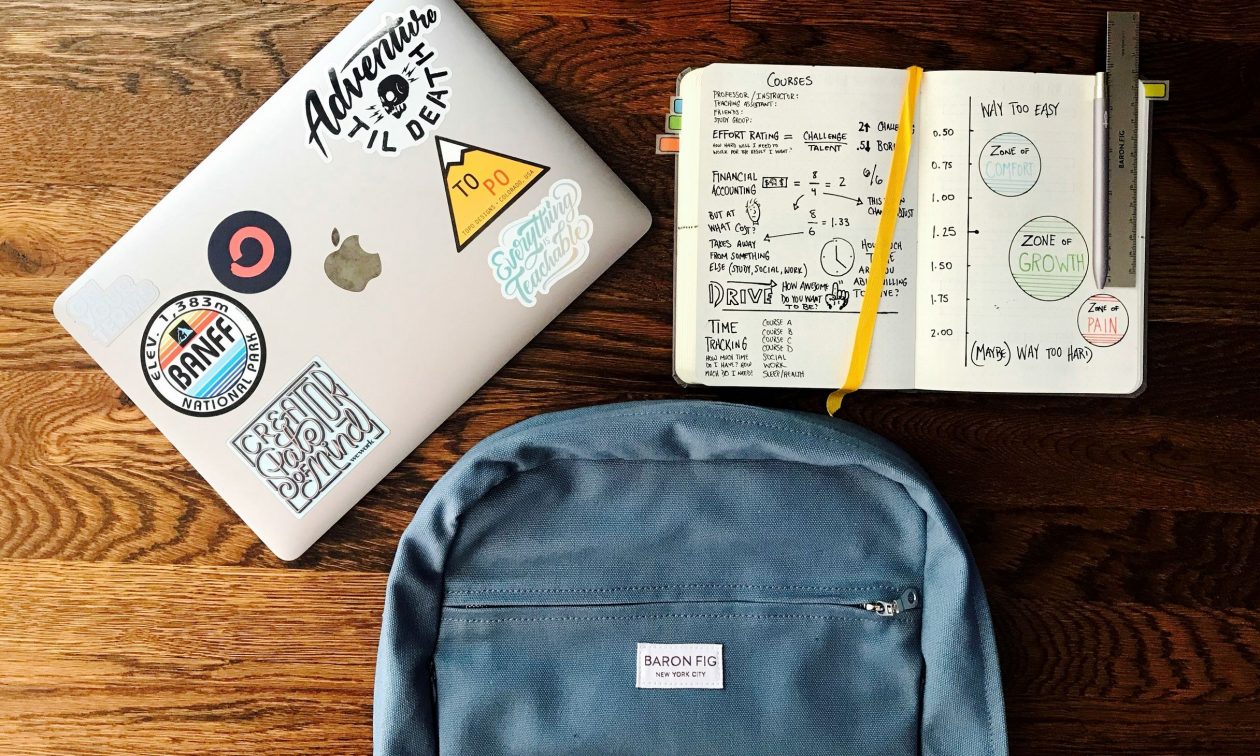 Adventure
TIL DEATH
TO PO
TOPO DESIGNS • COLORADO, USA
Everything
is
Teachable
ELEV. 1,383m
BANFF
NATIONAL PARK
CREATOR
State
OF Mind
wework
COURSES
PROFESSOR / INSTRUCTOR:
TEACHING ASSISTANT:
FRIENDS:
STUDY GROUP:
EFFORT RATING = CHALLENGE
TALENT
HOW HARD WILL I NEED TO
WORK FOR THE RESULT I WANT?
FINANCIAL
ACCOUNTING = 8/4 = 2 6/6
BUT AT
WHAT COST?
8/6 = 1.33
THIS
TAKES AWAY
FROM SOMETHING
ELSE (STUDY, SOCIAL, WORK)
HOW MUCH
ARE YOU
DRIVE HOW AWESOME
DO YOU WANT
TO BE?
TIME
TRACKING
HOW MUCH TIME
DO I HAVE? HOW
MUCH DO I NEED?
COURSE A
COURSE B
COURSE C
COURSE D
SOCIAL
WORK
SLEEP/HEALTH
WAY TOO EASY
0.50
0.75
1.00
1.25
1.50
1.75
2.00
ZONE OF
COMFORT
ZONE OF
GROWTH
ZONE OF
PAIN
(MAYBE) WAY TOO HARD
BARON FIG
BARON FIG
NEW YORK CITY